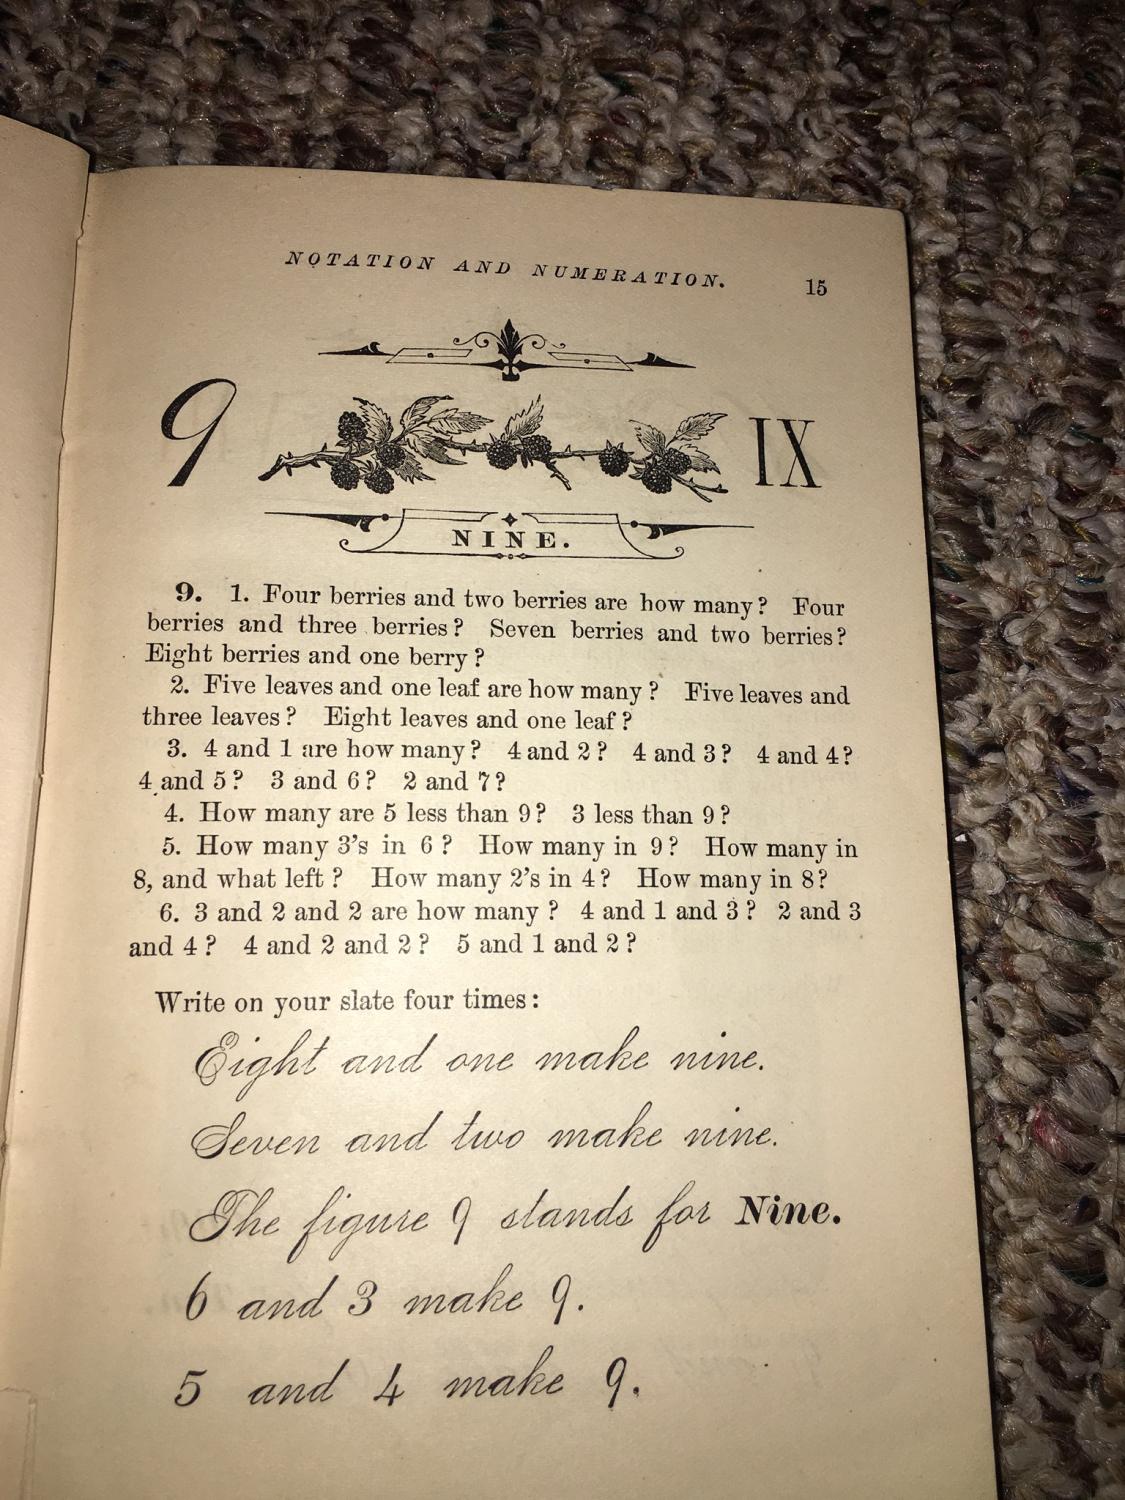 NOTATION AND NUMERATION. 15
9 IX
NINE.
9. 1. Four berries and two berries are how many? Four
berries and three berries? Seven berries and two berries?
Eight berries and one berry?
2. Five leaves and one leaf are how many? Five leaves and
three leaves? Eight leaves and one leaf?
3. 4 and 1 are how many? 4 and 2? 4 and 3? 4 and 4?
4 and 5? 3 and 6? 2 and 7?
4. How many are 5 less than 9? 3 less than 9?
5. How many 3's in 6? How many in 9? How many in
8, and what left? How many 2's in 4? How many in 8?
6. 3 and 2 and 2 are how many? 4 and 1 and 3? 2 and 3
and 4? 4 and 2 and 2? 5 and 1 and 2?
Write on your slate four times:
Eight and one make nine.
Seven and two make nine.
The figure 9 stands for Nine.
6 and 3 make 9.
5 and 4 make 9.